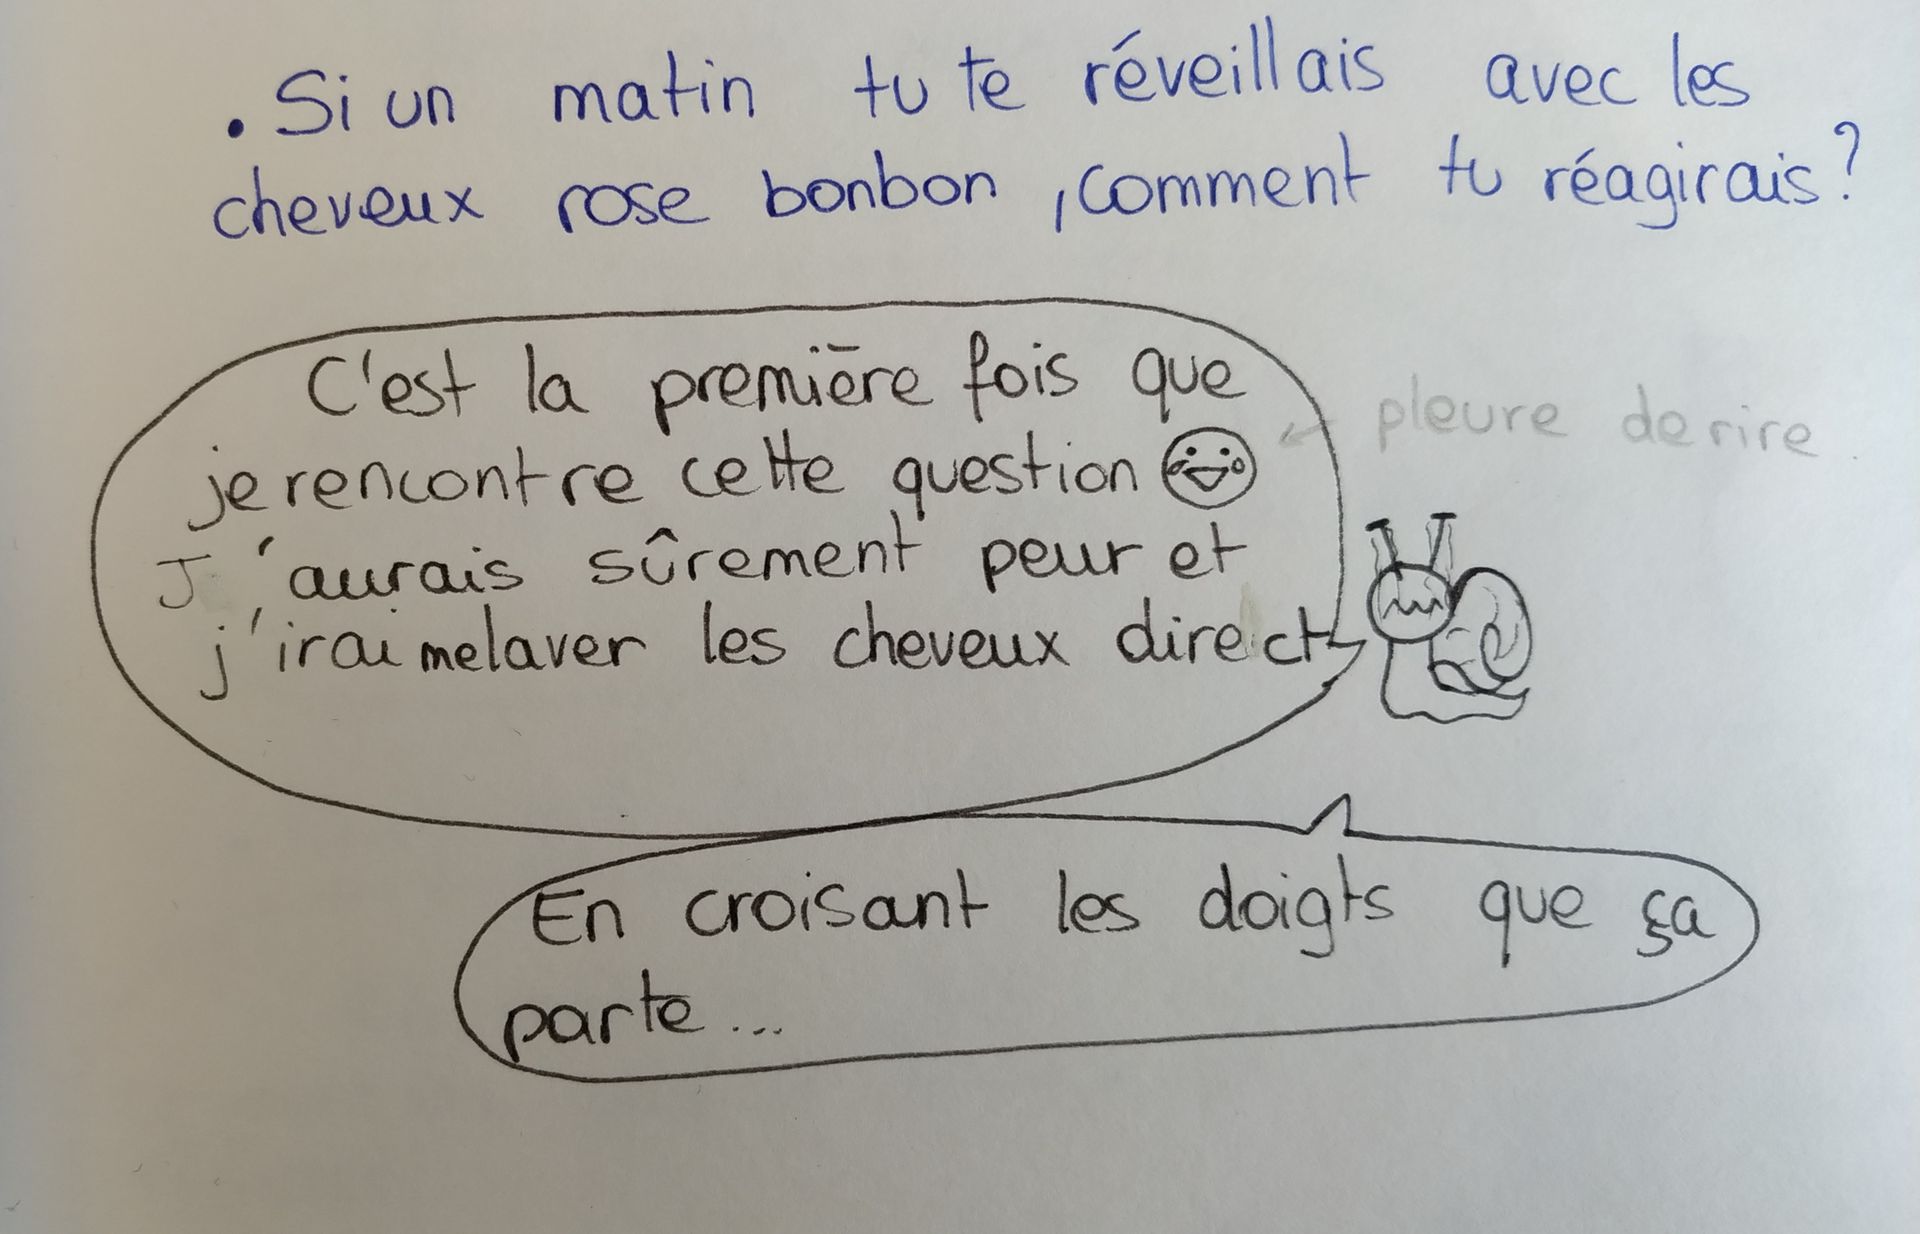 . Si un matin tu te réveillais avec les
cheveux rose bonbon, comment tu réagirais?
C'est la première fois que
je rencontre cette question 😂
← pleure de rire.
J'aurais sûrement peur et
j'irai me laver les cheveux direct
En croisant les doigts que ça
parte...